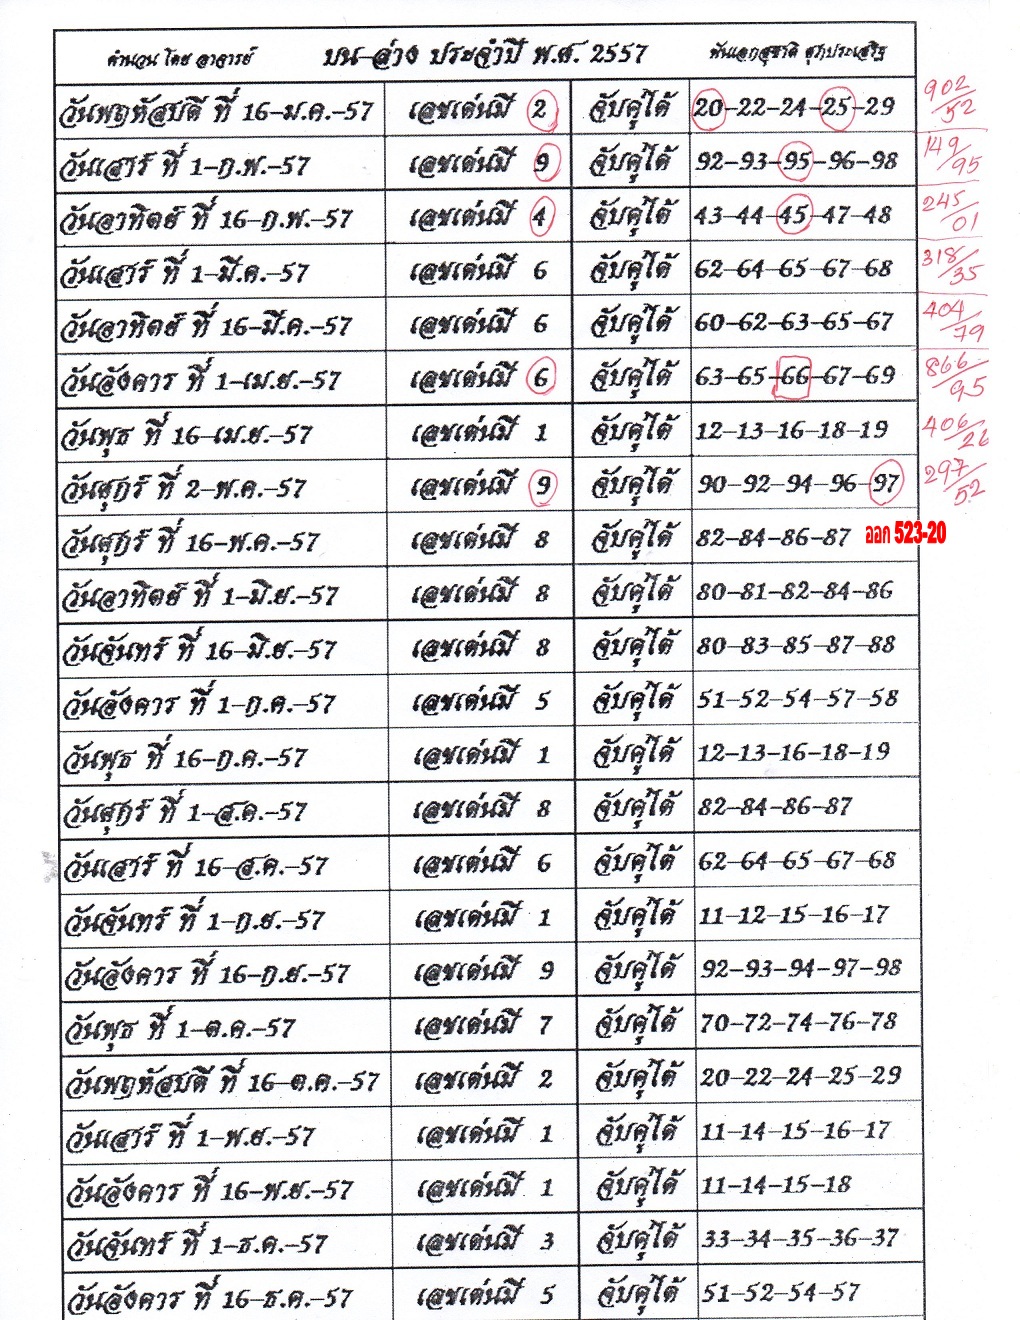 คำนวน โดย อาจารย์ บน-ล่าง ประจำปี พ.ศ. 2557 พันเอกสุชาติ สุภประเสริฐ
วันพฤหัสบดี ที่ 16-ม.ค.-57 เลขเด่นมี 2 จับคู่ได้ 20-22-24-25-29 902/52
วันเสาร์ ที่ 1-ก.พ.-57 เลขเด่นมี 9 จับคู่ได้ 92-93-95-96-98 149/95
วันอาทิตย์ ที่ 16-ก.พ.-57 เลขเด่นมี 4 จับคู่ได้ 43-44-45-47-48 245/01
วันเสาร์ ที่ 1-มี.ค.-57 เลขเด่นมี 6 จับคู่ได้ 62-64-65-67-68 318/35
วันอาทิตย์ ที่ 16-มี.ค.-57 เลขเด่นมี 6 จับคู่ได้ 60-62-63-65-67 404/79
วันอังคาร ที่ 1-เม.ย.-57 เลขเด่นมี 6 จับคู่ได้ 63-65-66-67-69 866/95
วันพุธ ที่ 16-เม.ย.-57 เลขเด่นมี 1 จับคู่ได้ 12-13-16-18-19 406/26
วันศุกร์ ที่ 2-พ.ค.-57 เลขเด่นมี 9 จับคู่ได้ 90-92-94-96-97 297/52
วันศุกร์ ที่ 16-พ.ค.-57 เลขเด่นมี 8 จับคู่ได้ 82-84-86-87 ออก 523-20
วันอาทิตย์ ที่ 1-มิ.ย.-57 เลขเด่นมี 8 จับคู่ได้ 80-81-82-84-86
วันจันทร์ ที่ 16-มิ.ย.-57 เลขเด่นมี 8 จับคู่ได้ 80-83-85-87-88
วันอังคาร ที่ 1-ก.ค.-57 เลขเด่นมี 5 จับคู่ได้ 51-52-54-57-58
วันพุธ ที่ 16-ก.ค.-57 เลขเด่นมี 1 จับคู่ได้ 12-13-16-18-19
วันศุกร์ ที่ 1-ส.ค.-57 เลขเด่นมี 8 จับคู่ได้ 82-84-86-87
วันเสาร์ ที่ 16-ส.ค.-57 เลขเด่นมี 6 จับคู่ได้ 62-64-65-67-68
วันจันทร์ ที่ 1-ก.ย.-57 เลขเด่นมี 1 จับคู่ได้ 11-12-15-16-17
วันอังคาร ที่ 16-ก.ย.-57 เลขเด่นมี 9 จับคู่ได้ 92-93-94-97-98
วันพุธ ที่ 1-ต.ค.-57 เลขเด่นมี 7 จับคู่ได้ 70-72-74-76-78
วันพฤหัสบดี ที่ 16-ต.ค.-57 เลขเด่นมี 2 จับคู่ได้ 20-22-24-25-29
วันเสาร์ ที่ 1-พ.ย.-57 เลขเด่นมี 1 จับคู่ได้ 11-14-15-16-17
วันอังคาร ที่ 16-พ.ย.-57 เลขเด่นมี 1 จับคู่ได้ 11-14-15-18
วันจันทร์ ที่ 1-ธ.ค.-57 เลขเด่นมี 3 จับคู่ได้ 33-34-35-36-37
วันอังคาร ที่ 16-ธ.ค.-57 เลขเด่นมี 5 จับคู่ได้ 51-52-54-57